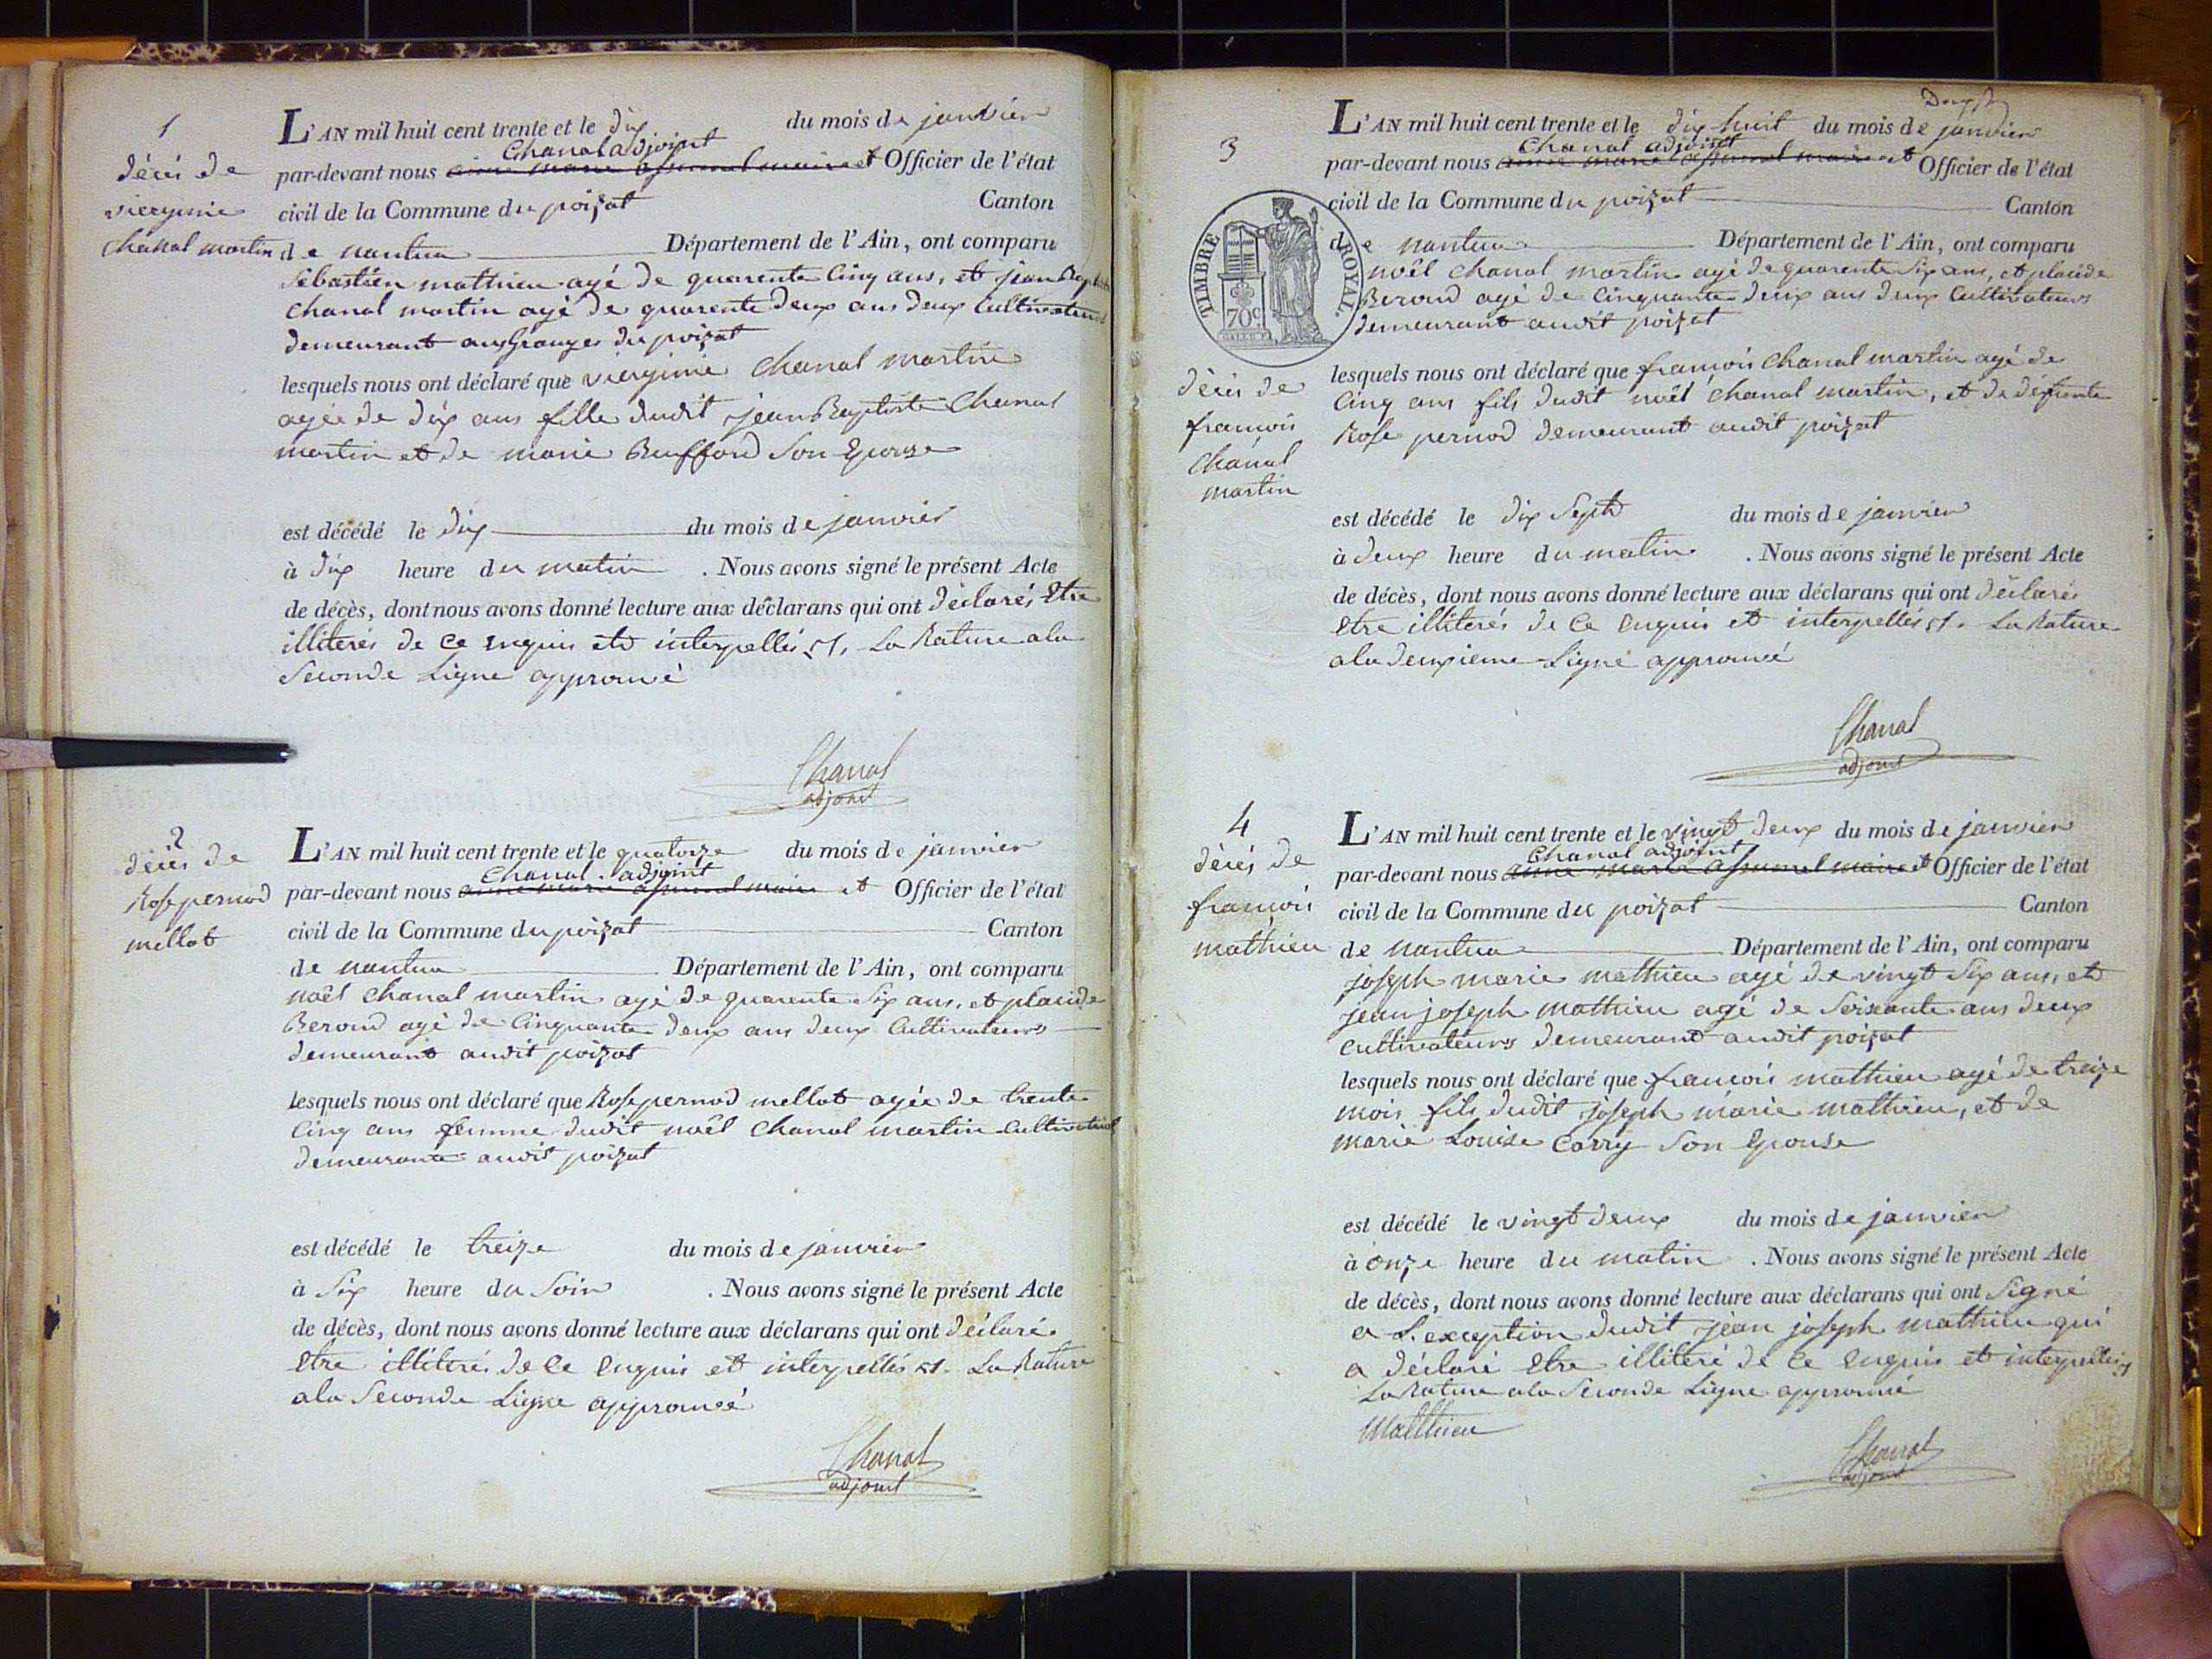 1
décès de
viergenie
chanal martin
L'AN mil huit cent trente et le dix du mois de janvier
chanal adjoint
par-devant nous et Officier de l'état
civil de la Commune du poizat Canton
de nantua Département de l'Ain, ont comparu
Sébastien mathieu agé de quarente Cinq ans, et jean Baptiste
chanal martin agé de quarente deux ans deux Cultivateurs
demeurant aux Granges du poizat
lesquels nous ont déclaré que viergenie chanal martin
agée de dix ans fille dudit jean Baptiste chanal
martin et de marie Buffard Son Epouse
est décédé le dix du mois de janvier
à dix heure du matin . Nous avons signé le présent Acte
de décès, dont nous avons donné lecture aux déclarans qui ont déclarés Etre
illiterés de ce enquis et interpellés La Rature a la
Seconde Ligne approuvé
Chanal
adjoint
2
décès de
Rose pernod
mellot
L'AN mil huit cent trente et le quatorze du mois de janvier
chanal adjoint
par-devant nous et Officier de l'état
civil de la Commune du poizat Canton
de nantua Département de l'Ain, ont comparu
noël chanal martin agé de quarente Six ans, et placide
Beroud agé de Cinquante deux ans deux Cultivateurs
demeurant audit poizat
lesquels nous ont déclaré que Rose pernod mellot agée de trente
Cinq ans femme dudit noël chanal martin
demeurant audit poizat
est décédé le treize du mois de janvier
à Six heure du Soir . Nous avons signé le présent Acte
de décès, dont nous avons donné lecture aux déclarans qui ont déclaré
Etre illiteré de ce Enquis et interpellés La Rature
a la Seconde Ligne approuvé
Chanal
adjoint
3
TIMBRE ROYAL.
70c
décès de
françois
chanal
martin
L'AN mil huit cent trente et le dix huit du mois de janvier
chanal adjoint
par-devant nous et Officier de l'état
civil de la Commune du poizat Canton
de nantua Département de l'Ain, ont comparu
noël chanal martin agé de quarente Six ans, et placide
Beroud agé de Cinquante deux ans deux Cultivateurs
demeurant audit poizat
lesquels nous ont déclaré que françois chanal martin agé de
Cinq ans fils dudit noël chanal martin, et de défunte
Rose pernod demeurant audit poizat
est décédé le dix Sept du mois de janvier
à deux heure du matin . Nous avons signé le présent Acte
de décès, dont nous avons donné lecture aux déclarans qui ont déclarés
Etre illiterés de ce Enquis et interpellés La Rature
a la deuxieme Ligne approuvé
Chanal
adjoint
4
décés de
françois
mathieu
L'AN mil huit cent trente et le vingt deux du mois de janvier
chanal adjoint
par-devant nous et Officier de l'état
civil de la Commune du poizat Canton
de nantua Département de l'Ain, ont comparu
joseph marie mathieu agé de vingt Six ans, et
jean joseph mathieu agé de Soixante ans deux
cultivateurs demeurant audit poizat
lesquels nous ont déclaré que françois mathieu agé de treize
mois fils dudit joseph marie mathieu, et de
marie Louise Carry Son Epouse
est décédé le vingt deux du mois de janvier
à onze heure du matin . Nous avons signé le présent Acte
de décès, dont nous avons donné lecture aux déclarans qui ont Signé
a L'exception dudit jean joseph mathieu qui
a déclaré Etre illiteré de ce Enquis et interpellé
La Rature a la Seconde Ligne approuvé
Matthieu
Chanal
adjoint